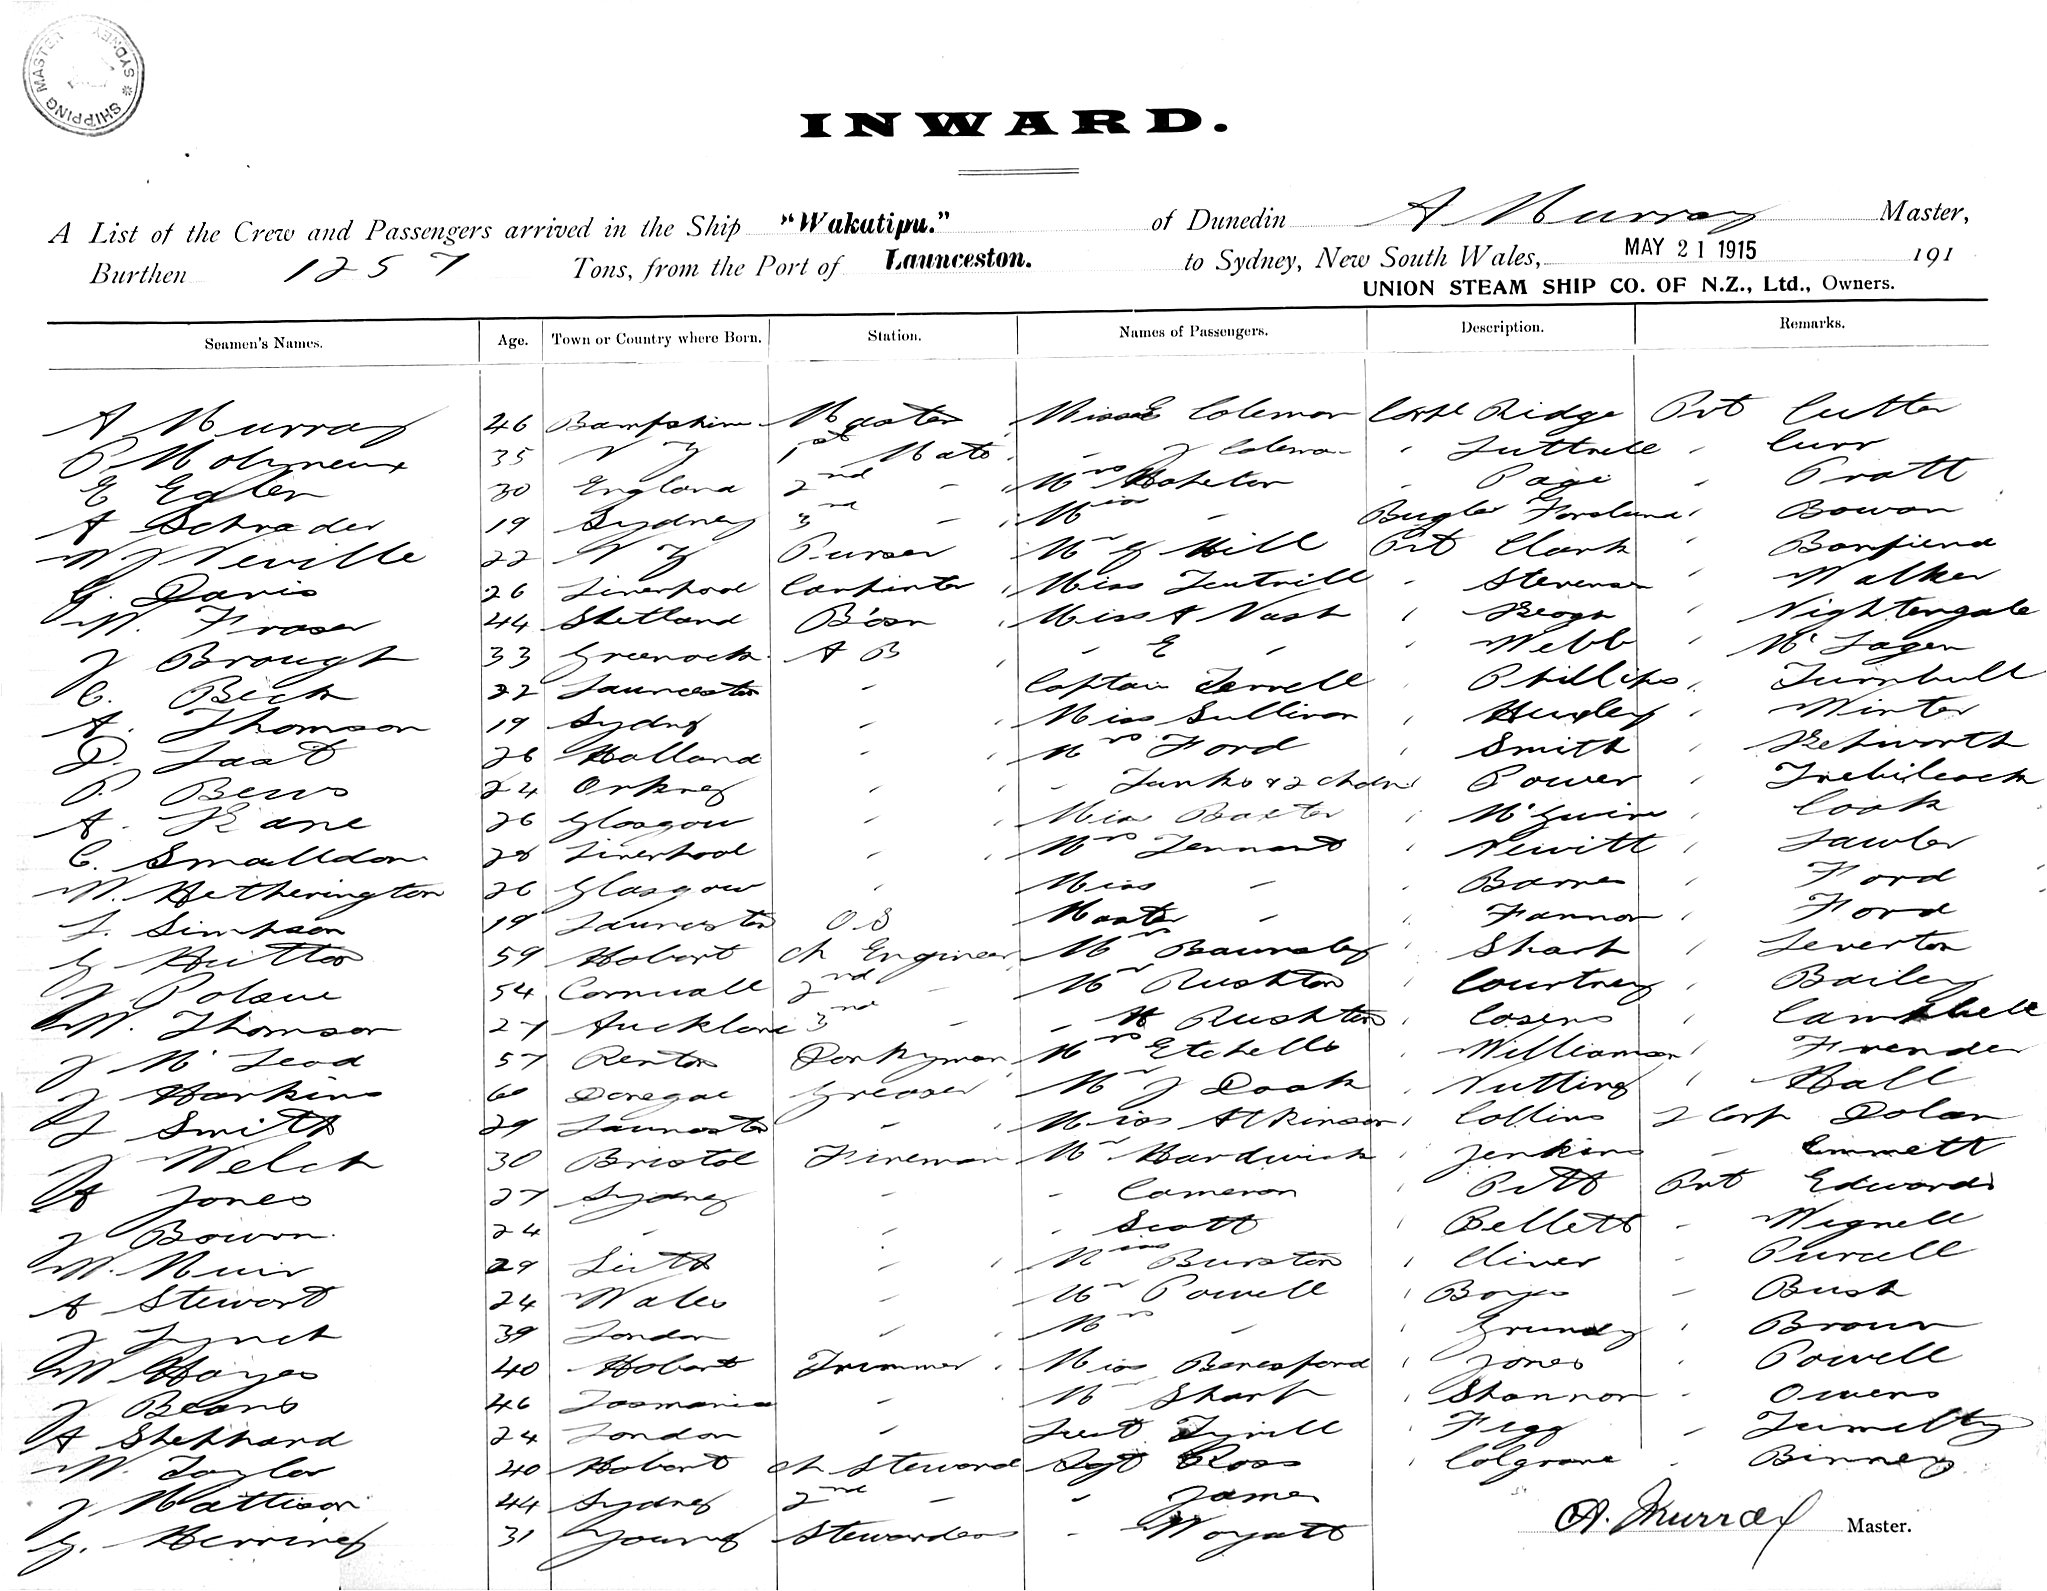 SHIPPING MASTER SYDNEY
INWARD.
A List of the Crew and Passengers arrived in the Ship "Wakatipu." of Dunedin A Murray Master,
Burthen 1257 Tons, from the Port of Launceston. to Sydney, New South Wales, MAY 21 1915 191
UNION STEAM SHIP CO. OF N.Z., Ltd., Owners.
Seamen's Names. Age. Town or Country where Born. Station. Names of Passengers. Description. Remarks.
A Murray 46 Master Misses E Coleman Corpl Ridge Pvt Cutter
P Molyneux 35 N Z 1st Mate - J Coleman " Luttrell " Curr
E Egler 30 England 2nd - Mrs " Page " Pratt
A Schrader 19 Sydney 3rd - Miss - Bugler " Bowen
W J Neville 22 N Z Purser Mr G Hill Pvt Clark "
G. Davis 26 Liverpool Carpenter Miss " Stevens " Walker
W. Fraser 44 Shetland B'osn Miss A Nash " Keogh " Nightengale
J Brough 33 Greenock A B - E - " Webb "
C. Beck 22 Launceston - Captain Terrell " Phillips " Turnbull
A. Thomson 19 Sydney - Miss Sullivan " Huxley " Winter
D. Laat 26 Holland - Mrs Ford " Smith "
P. Bews 24 Orkney - - & 2 chdn " Power " Trebilcock
A. Kane 26 Glasgow - Miss Baxter " McGuire " Cook
C. Smalldon 28 Liverpool - Mrs Tennant " Newitt " Lawler
W. Hetherington 26 Glasgow - Miss - " Barnes " Ford
L. Simpson 19 Launceston O.S Master - " Fannon " Ford
G Hutton 59 Hobart ch Engineer Mrs " Sharp " Leverton
J Polsue 54 Cornwall 2nd - Mr Rushton " Courtney " Bailey
W. Thomson 27 Auckland 3rd - - H Rushton " Cosens " Campbell
J McLeod 57 Renton Donkyman Mrs Etchells " Williamson "
J Harkins 60 Donegal Greaser Mr J Doak " Nutting " Hall
J Smith 29 Launceston - Miss Atkinson " Collins L Corp Dolan
J Welch 30 Bristol Fireman Mr Hardwick " Jenkins - Emmett
A Jones 27 Sydney - - Cameron " Pitt Pvt Edwards
J Bowen 24 - - - Scott " Bellett - Wignell
W. Muir 29 Leith - Miss Burston " Cliver - Purcell
A Stewart 24 Wales - Mr Powell " Boyes - Bush
J Lynch 39 London - Mrs - " Grundy " Brown
W Hayes 40 Hobart Trimmer Miss Beresford " Jones " Powell
J Beans 46 Tasmania - Mr Sharp " Shannon - Owens
A Shephard 24 London - Lieut Tyrill " Figg - Tumelty
W. Taylor 40 Hobart ch Steward Sgt Ross " Colgrave - Binney
J Mattison 44 Sydney 2nd - - James
G. Herring 31 Young Stewardess - Woyatt
A. Murray Master.